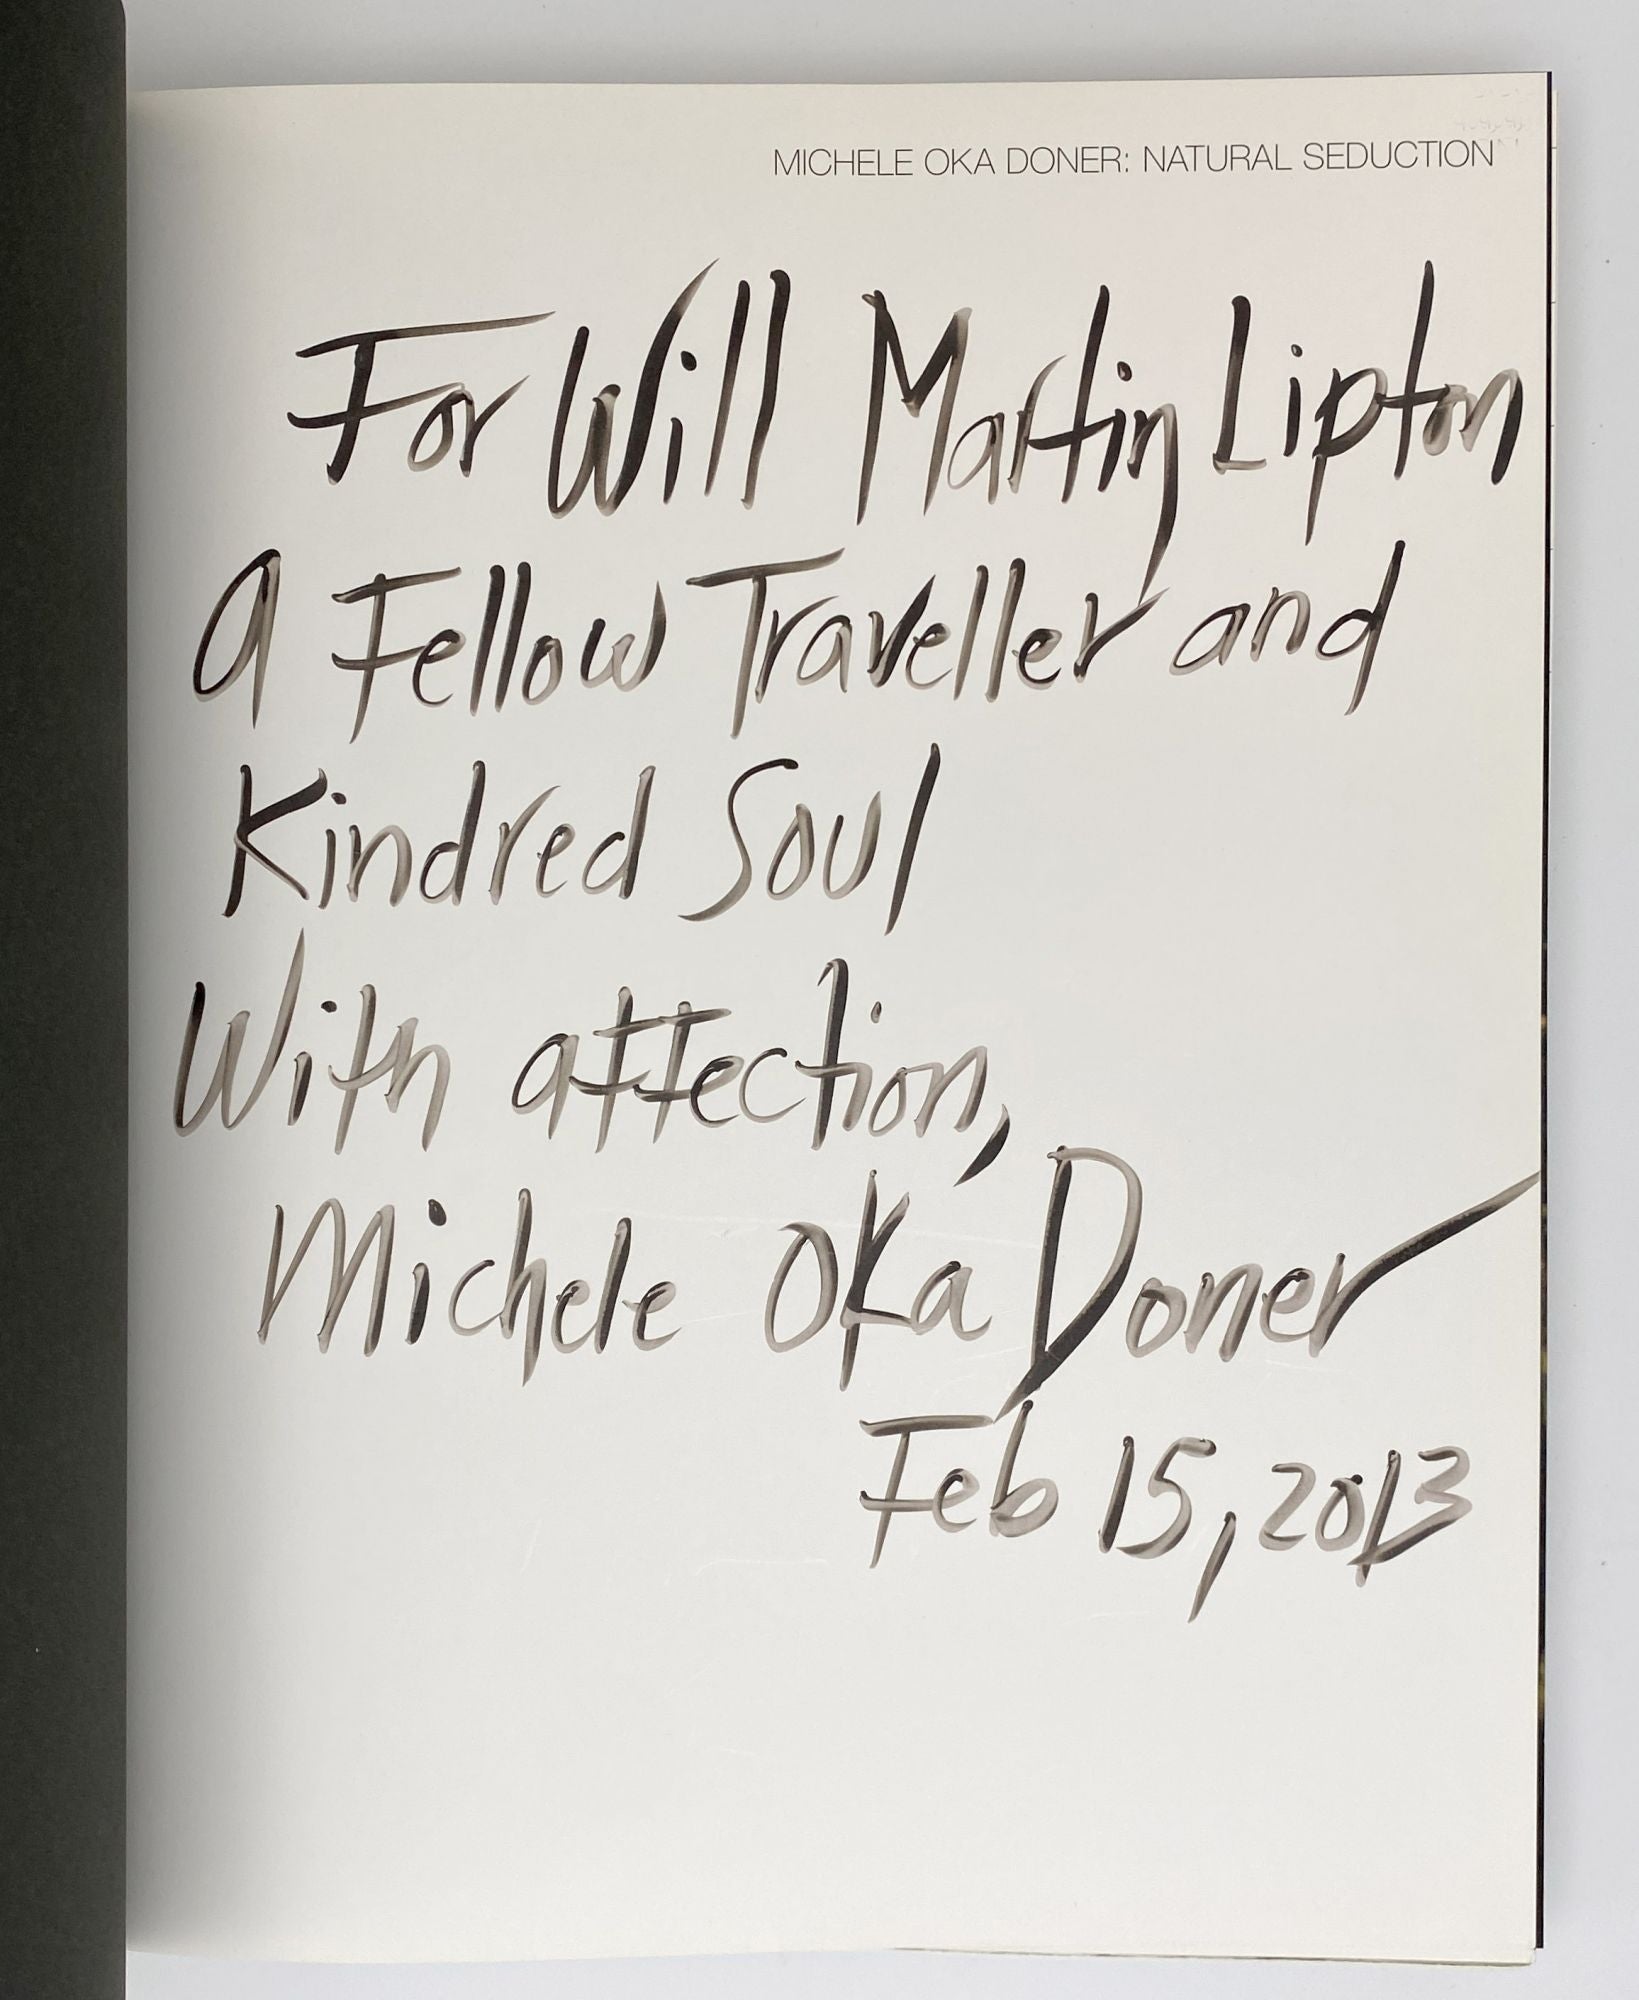 MICHELE OKA DONER: NATURAL SEDUCTION
For Will Martin Lipton
A Fellow Traveller and
Kindred Soul
With affection,
Michele Oka Doner
Feb 15, 2013